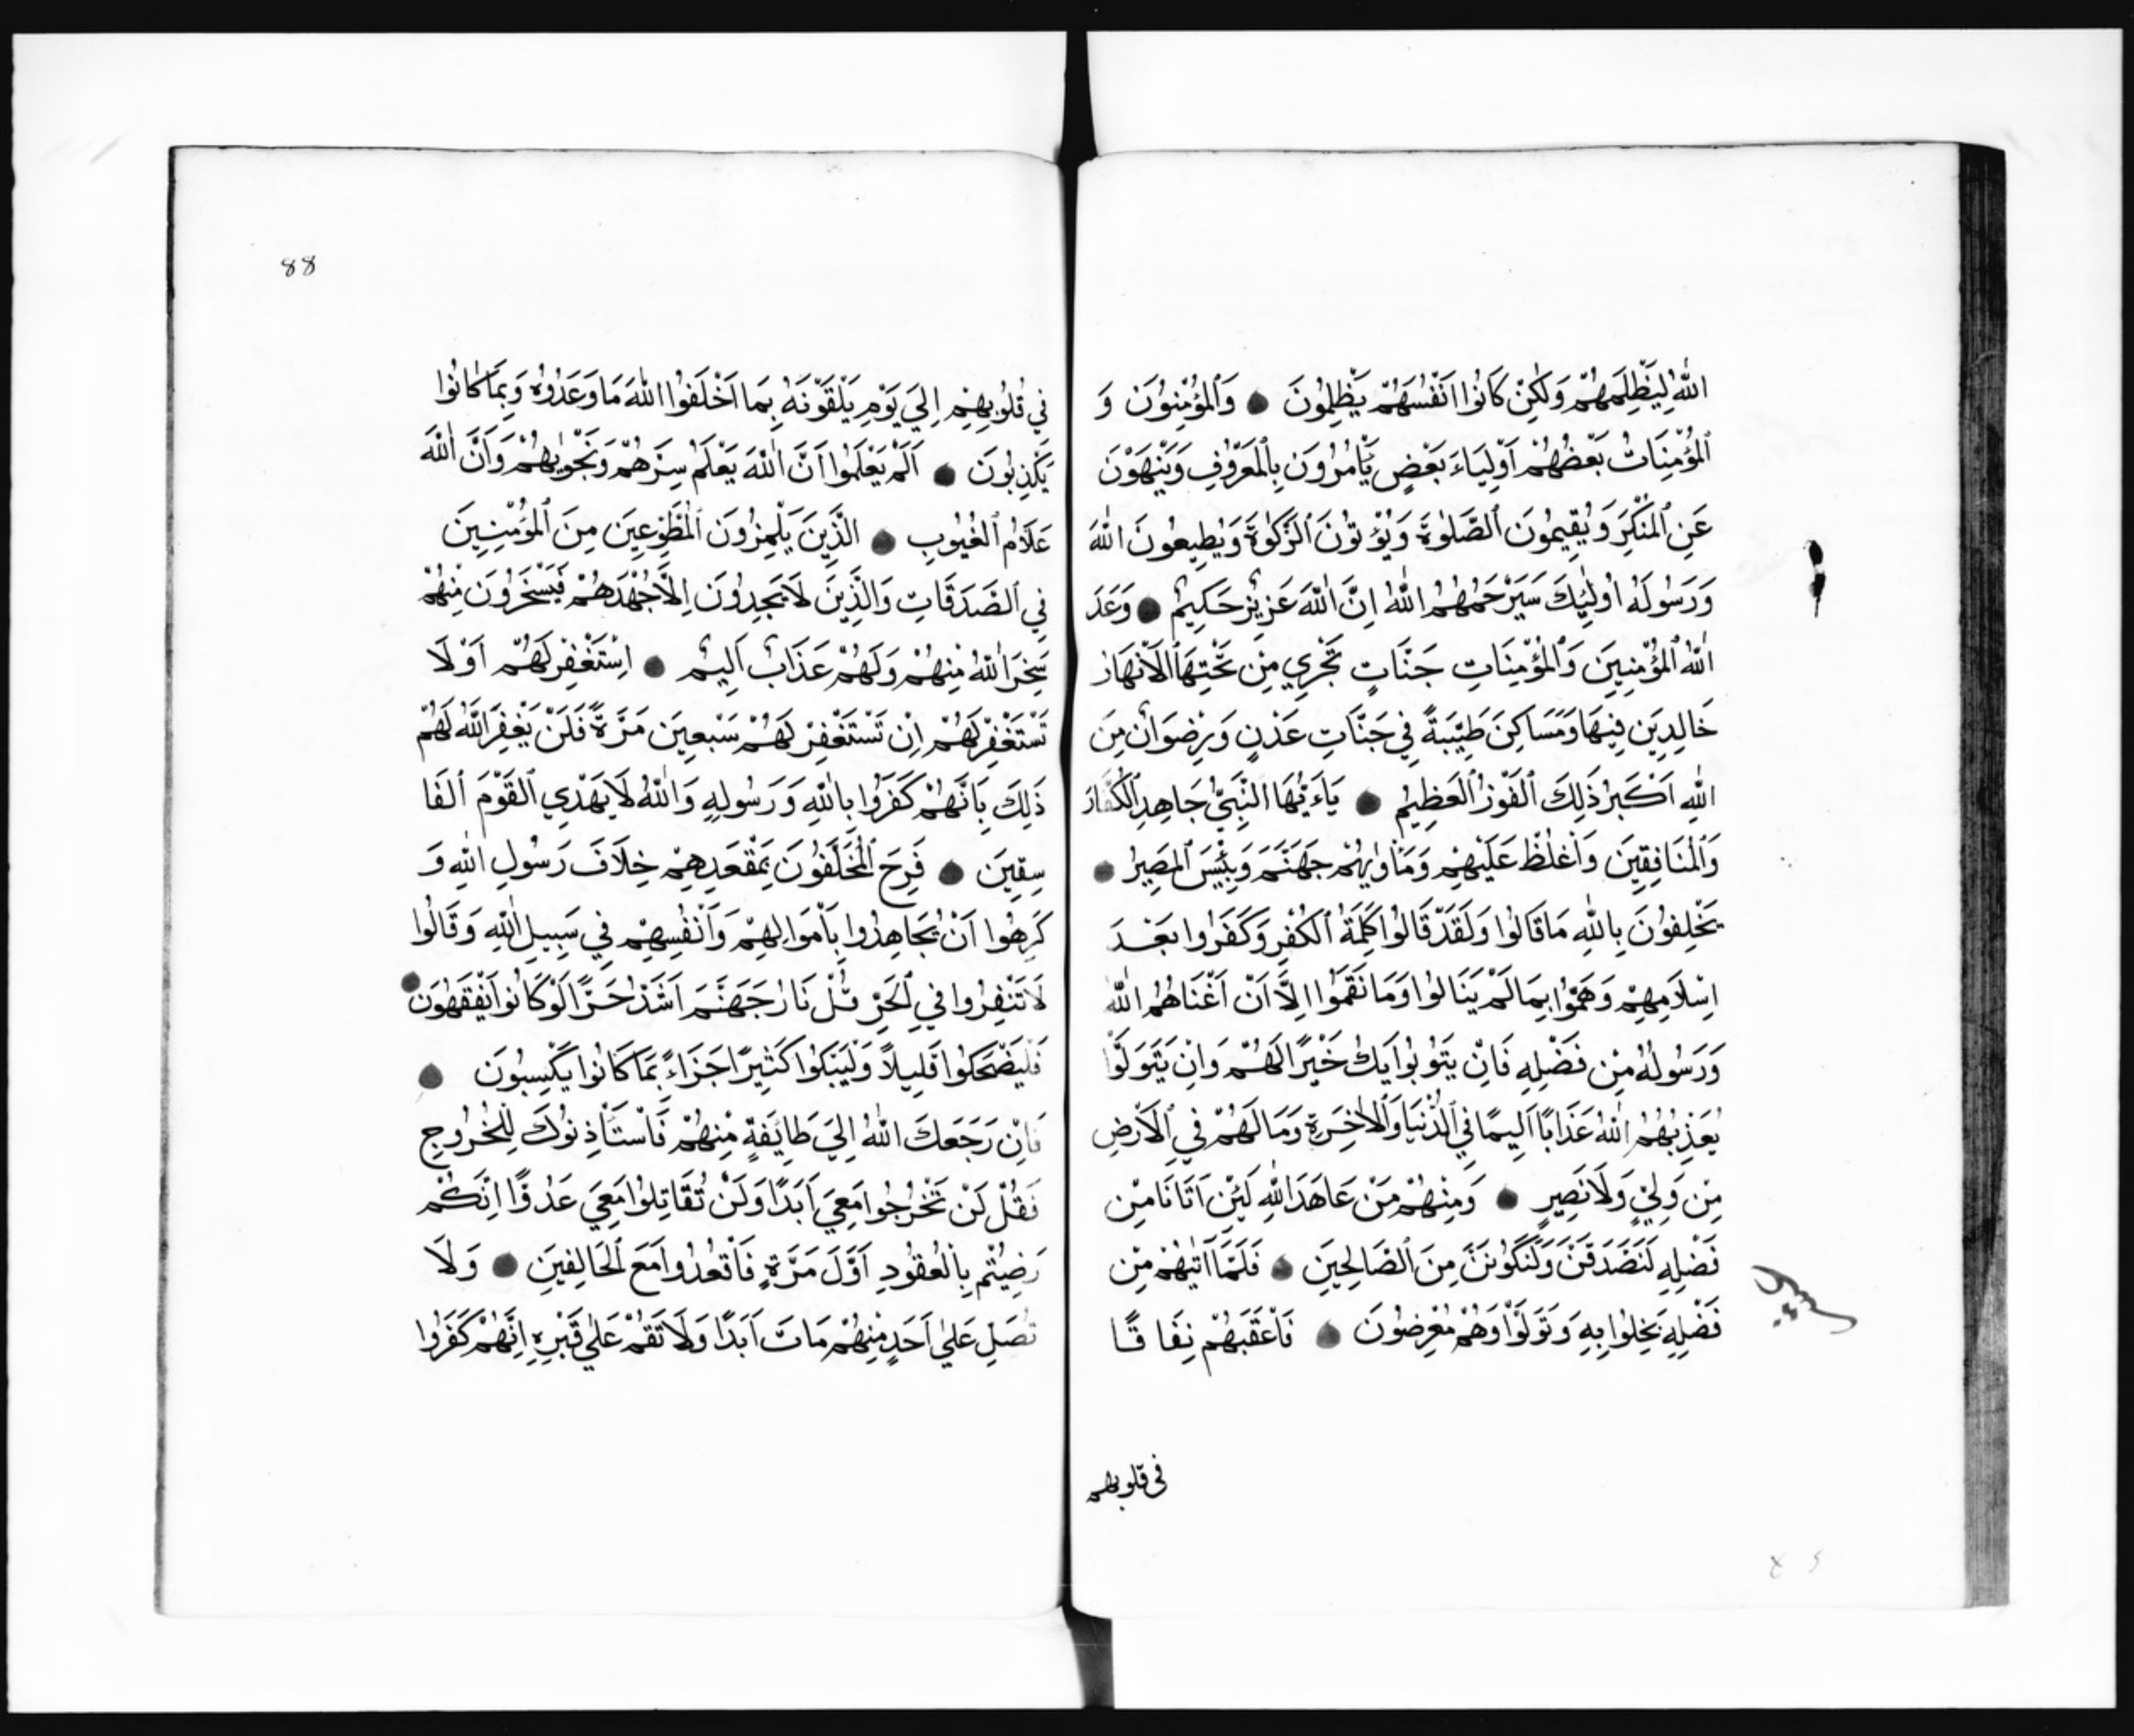 اللّٰهُ لِيَظْلِمَهُمْ وَلٰكِنْ كَانُوا اَنْفُسَهُمْ يَظْلِمُونَ وَالْمُؤْمِنُونَ وَ
الْمُؤْمِنَاتُ بَعْضُهُمْ اَوْلِيَاءُ بَعْضٍ يَأْمُرُونَ بِالْمَعْرُوفِ وَيَنْهَوْنَ
عَنِ الْمُنْكَرِ وَيُقِيمُونَ الصَّلٰوةَ وَيُؤْتُونَ الزَّكٰوةَ وَيُطِيعُونَ اللّٰهَ
وَرَسُولَهُ اُولٰئِكَ سَيَرْحَمُهُمُ اللّٰهُ اِنَّ اللّٰهَ عَزِيزٌ حَكِيمٌ وَعَدَ
اللّٰهُ الْمُؤْمِنِينَ وَالْمُؤْمِنَاتِ جَنَّاتٍ تَجْرِي مِنْ تَحْتِهَا الْاَنْهَارُ
خَالِدِينَ فِيهَا وَمَسَاكِنَ طَيِّبَةً فِي جَنَّاتِ عَدْنٍ وَرِضْوَانٌ مِنَ
اللّٰهِ اَكْبَرُ ذَلِكَ الْفَوْزُ الْعَظِيمُ يَاءَيُّهَا النَّبِيُّ جَاهِدِ الْكُفَّارَ
وَالْمُنَافِقِينَ وَاغْلُظْ عَلَيْهِمْ وَمَأْوٰيهُمْ جَهَنَّمَ وَبِئْسَ الْمَصِيرُ
يَحْلِفُونَ بِاللّٰهِ مَا قَالُوا وَلَقَدْ قَالُوا كَلِمَةَ الْكُفْرِ وَكَفَرُوا بَعْدَ
اِسْلَامِهِمْ وَهَمُّوا بِمَا لَمْ يَنَالُوا وَمَا نَقَمُوا اِلَّا اَنْ اَغْنَاهُمُ اللّٰهُ
وَرَسُولُهُ مِنْ فَضْلِهِ فَاِنْ يَتُوبُوا يَكُ خَيْرًا لَهُمْ وَاِنْ يَتَوَلَّوْا
يُعَذِّبْهُمُ اللّٰهُ عَذَابًا اَلِيمًا فِي الدُّنْيَا وَالْاٰخِرَةِ وَمَا لَهُمْ فِي الْاَرْضِ
مِنْ وَلِيٍّ وَلَا نَصِيرٍ وَمِنْهُمْ مَنْ عَاهَدَ اللّٰهَ لَئِنْ اٰتَانَا مِنْ
فَضْلِهِ لَنَصَّدَّقَنَّ وَلَنَكُونَنَّ مِنَ الصَّالِحِينَ فَلَمَّا اٰتٰيهُمْ مِنْ
فَضْلِهِ بَخِلُوا بِهِ وَتَوَلَّوْا وَهُمْ مُعْرِضُونَ فَاَعْقَبَهُمْ نِفَاقًا
فى قلوبهم
88
فِي قُلُوبِهِمْ اِلَي يَوْمِ يَلْقَوْنَهُ بِمَا اَخْلَفُوا اللّٰهَ مَا وَعَدُوهُ وَبِمَا كَانُوا
يَكْذِبُونَ اَلَمْ يَعْلَمُوا اَنَّ اللّٰهَ يَعْلَمُ سِرَّهُمْ وَنَجْوٰيهُمْ وَاَنَّ اللّٰهَ
عَلَّامُ الْغُيُوبِ الَّذِينَ يَلْمِزُونَ الْمُطَّوِّعِينَ مِنَ الْمُؤْمِنِينَ
فِي الصَّدَقَاتِ وَالَّذِينَ لَا يَجِدُونَ اِلَّا جُهْدَهُمْ فَيَسْخَرُونَ مِنْهُمْ
سَخِرَ اللّٰهُ مِنْهُمْ وَلَهُمْ عَذَابٌ اَلِيمٌ اِسْتَغْفِرْ لَهُمْ اَوْ لَا
تَسْتَغْفِرْ لَهُمْ اِنْ تَسْتَغْفِرْ لَهُمْ سَبْعِينَ مَرَّةً فَلَنْ يَغْفِرَ اللّٰهُ لَهُمْ
ذَلِكَ بِاَنَّهُمْ كَفَرُوا بِاللّٰهِ وَرَسُولِهِ وَاللّٰهُ لَا يَهْدِي الْقَوْمَ الْفَا
سِقِينَ فَرِحَ الْمُخَلَّفُونَ بِمَقْعَدِهِمْ خِلَافَ رَسُولِ اللّٰهِ وَ
كَرِهُوا اَنْ يُجَاهِدُوا بِاَمْوَالِهِمْ وَاَنْفُسِهِمْ فِي سَبِيلِ اللّٰهِ وَقَالُوا
لَا تَنْفِرُوا فِي الْحَرِّ قُلْ نَارُ جَهَنَّمَ اَشَدُّ حَرًّا لَوْ كَانُوا يَفْقَهُونَ
فَلْيَضْحَكُوا قَلِيلًا وَلْيَبْكُوا كَثِيرًا جَزَاءً بِمَا كَانُوا يَكْسِبُونَ
فَاِنْ رَجَعَكَ اللّٰهُ اِلَي طَايِفَةٍ مِنْهُمْ فَاسْتَأْذَنُوكَ لِلْخُرُوجِ
فَقُلْ لَنْ تَخْرُجُوا مَعِيَ اَبَدًا وَلَنْ تُقَاتِلُوا مَعِيَ عَدُوًّا اِنَّكُمْ
رَضِيتُمْ بِالْقُعُودِ اَوَّلَ مَرَّةٍ فَاقْعُدُوا مَعَ الْخَالِفِينَ وَلَا
تُصَلِّ عَلٰي اَحَدٍ مِنْهُمْ مَاتَ اَبَدًا وَلَا تَقُمْ عَلٰي قَبْرِهِ اِنَّهُمْ كَفَرُوا